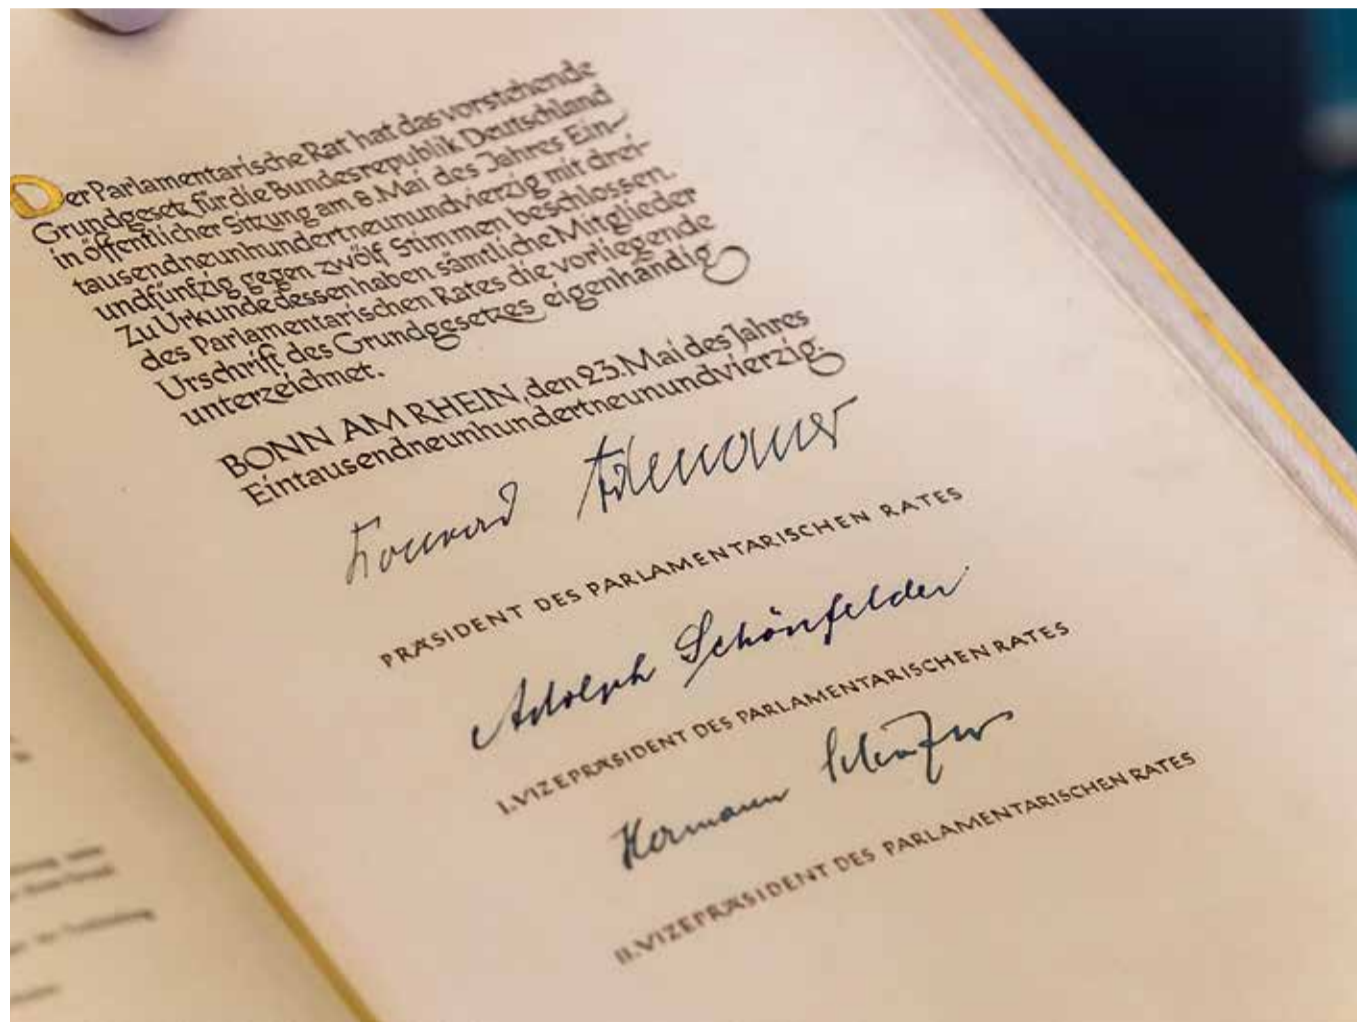 Der Parlamentarische Rat hat das vorstehende
Grundgesetz für die Bundesrepublik Deutschland
in öffentlicher Sitzung am 8. Mai des Jahres Ein-
tausendneunhundertneunundvierzig mit drei-
undfünfzig gegen zwölf Stimmen beschlossen.
Zu Urkunde dessen haben sämtliche Mitglieder
des Parlamentarischen Rates die vorliegende
Urschrift des Grundgesetzes eigenhändig
unterzeichnet.
BONN AM RHEIN, den 23. Mai des Jahres
Eintausendneunhundertneunundvierzig.
Konrad Adenauer
PRÄSIDENT DES PARLAMENTARISCHEN RATES
Adolph Schönfelder
I. VIZEPRÄSIDENT DES PARLAMENTARISCHEN RATES
Hermann Schäfer
II. VIZEPRÄSIDENT DES PARLAMENTARISCHEN RATES